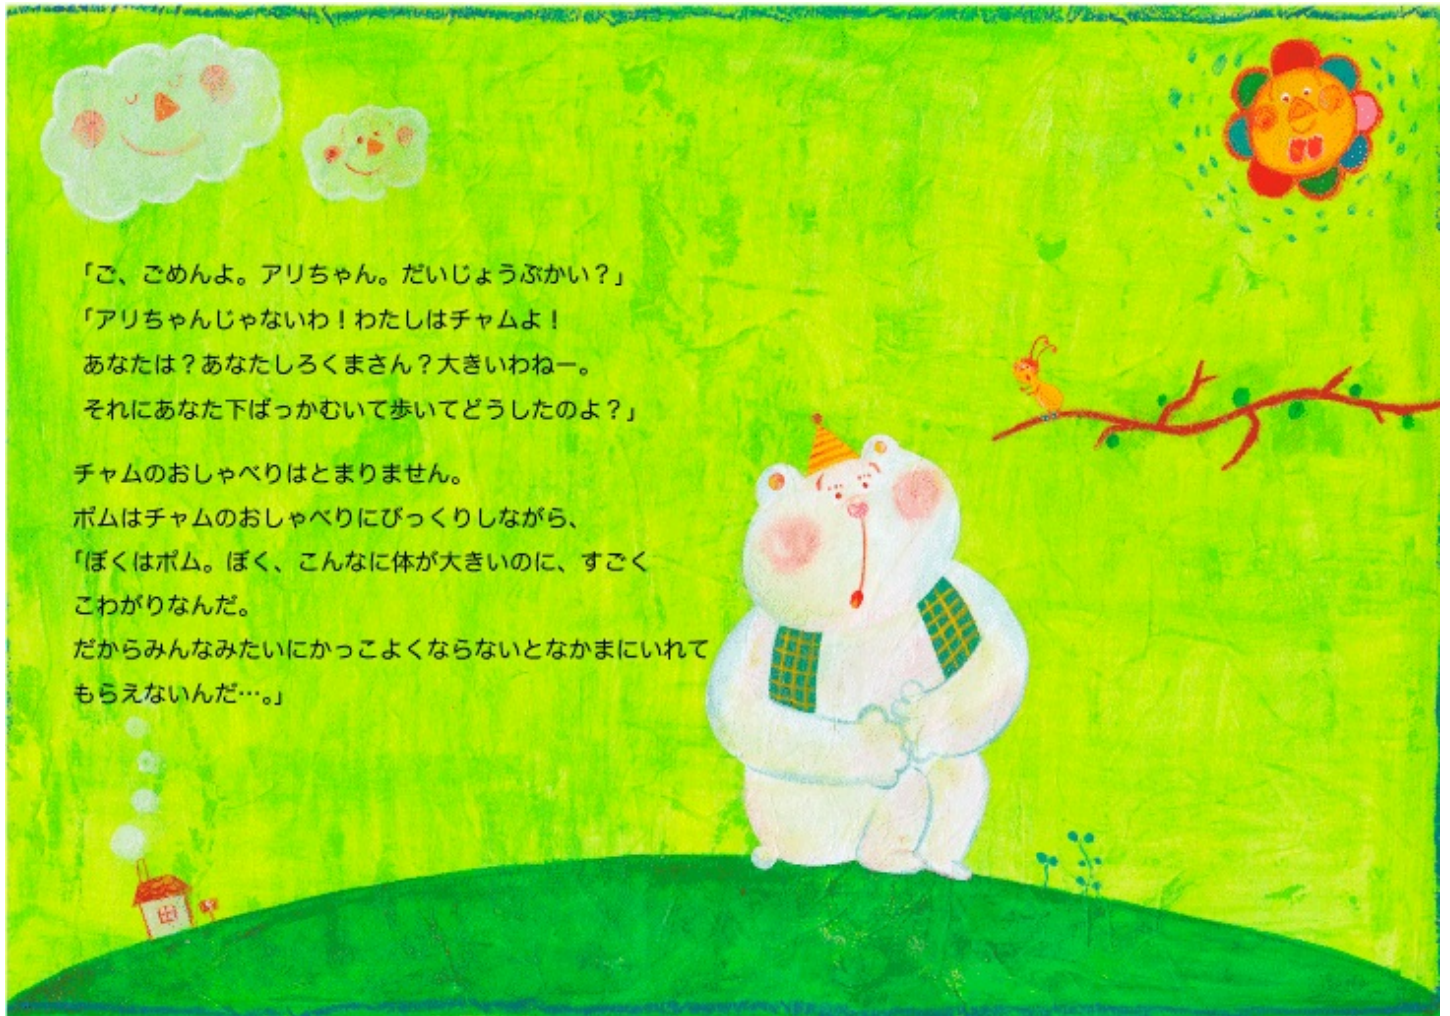 「ご、ごめんよ。アリちゃん。だいじょうぶかい？」
「アリちゃんじゃないわ！わたしはチャムよ！
あなたは？あなたしろくまさん？大きいわねー。
それにあなた下ばっかむいて歩いてどうしたのよ？」
チャムのおしゃべりはとまりません。
ポムはチャムのおしゃべりにびっくりしながら、
「ぼくはポム。ぼく、こんなに体が大きいのに、すごく
こわがりなんだ。
だからみんなみたいにかっこよくならないとなかまにいれて
もらえないんだ…。」